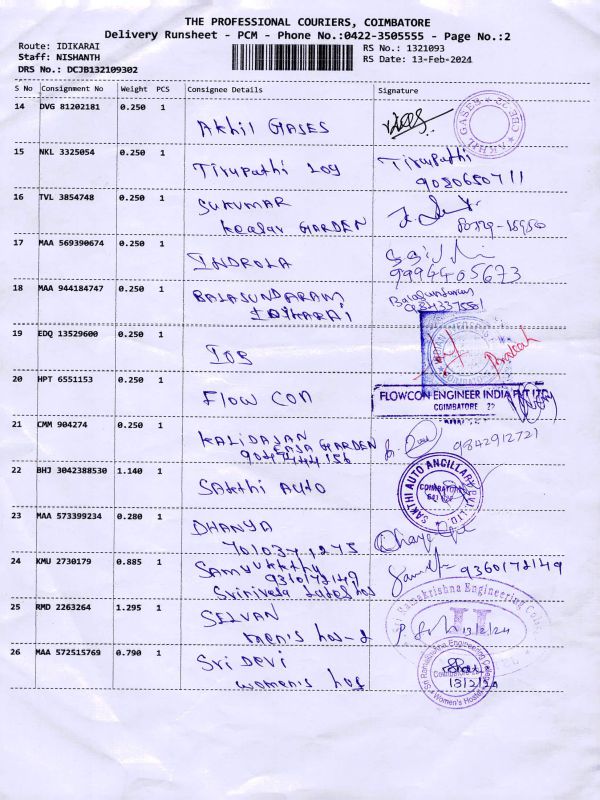 THE PROFESSIONAL COURIERS, COIMBATORE
Delivery Runsheet - PCM - Phone No.:0422-3505555 - Page No.:2
Route: IDIKARAI
RS No.: 1321093
Staff: NISHANTH
RS Date: 13-Feb-2024
DRS No.: DCJB132109302
S No Consignment No Weight PCS Consignee Details Signature
14 DVG 81202181 0.250 1
Akhil GASES
15 NKL 3325054 0.250 1
Tirupathi log
Tirupathi
16 TVL 3854748 0.250 1
SUKUMAR
GARDEN
17 MAA 569390674 0.250 1
INDROLA
9994405673
18 MAA 944184747 0.250 1
BALASUNDARAM
IDIKARAI
Balasundaram
19 EDQ 13529600 0.250 1
IOB
Prakash
20 HPT 6551153 0.250 1
Flow CON
FLOWCON ENGINEER INDIA PVT LTD
COIMBATORE 22
21 CMM 904274 0.250 1
KALIDASAN
GARDEN
9842912721
22 BHJ 3042388530 1.140 1
SAKTHI AUTO
SAKTHI AUTO ANCILLARY PVT. LTD.
COIMBATORE
23 MAA 573399234 0.280 1
DHANYA
24 KMU 2730179 0.885 1
SAMYUKKTHA
9360172149
9360172149
hos
25 RMD 2263264 1.295 1
SELVAN
men's hos-2
Ramakrishna Engineering College
13/2/24
26 MAA 572515769 0.790 1
Sri DEVI
women's hos
Sri Ramakrishna Engineering College
Women's Hostel
13/2/24